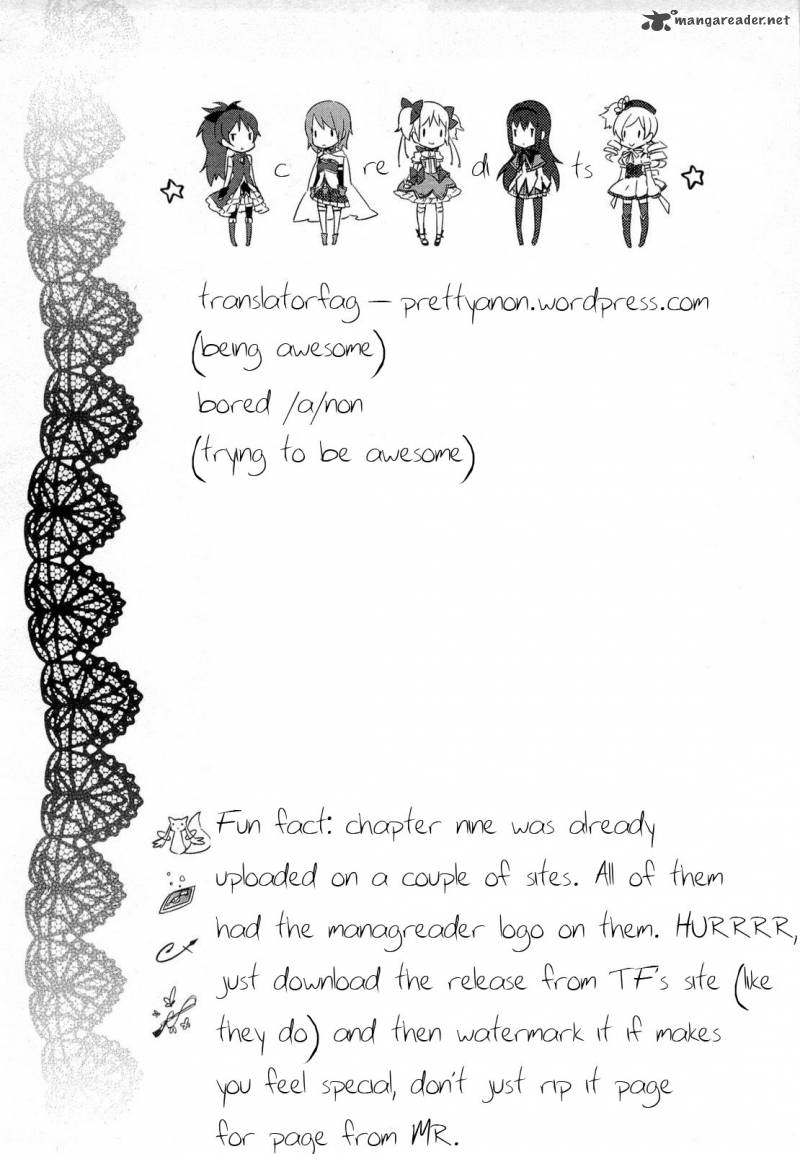 mangareader.net
c re di ts
translatorfag — prettyanon.wordpress.com
(being awesome)
bored /a/non
(trying to be awesome)
Fun fact: chapter nine was already
uploaded on a couple of sites. All of them
had the managreader logo on them. HURRRR,
just download the release from TF's site (like
they do) and then watermark it if makes
you feel special, don't just rip it page
for page from MR.